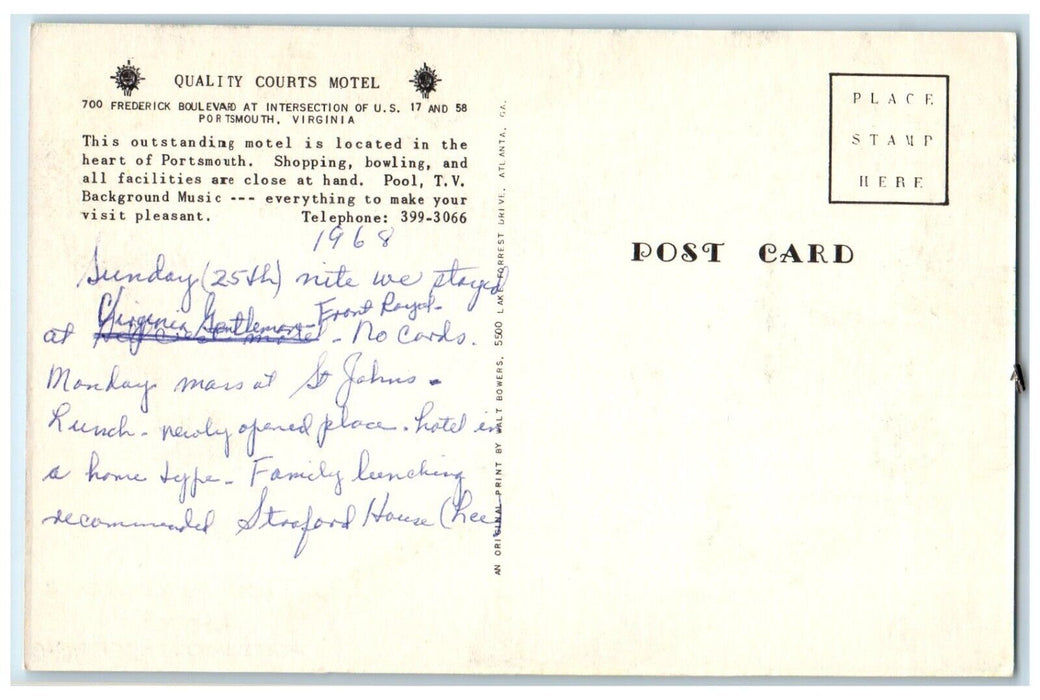 QUALITY COURTS MOTEL
700 FREDERICK BOULEVARD AT INTERSECTION OF U.S. 17 AND 58
PORTSMOUTH, VIRGINIA
This outstanding motel is located in the
heart of Portsmouth. Shopping, bowling, and
all facilities are close at hand. Pool, T.V.
Background Music --- everything to make your
visit pleasant. Telephone: 399-3066
1968
Sunday (25th) nite we stayed
Virginia Gentleman - Front Royal -
at - No Cards.
Monday mass at St Johns -
Lunch - newly opened place. hotel in
a home type - Family lunching
recommended Straford House (Lee
AN ORIGINAL PRINT BY WALT BOWERS, 5500 LAKE FORREST DRIVE, ATLANTA, GA.
PLACE
STAMP
HERE
POST CARD